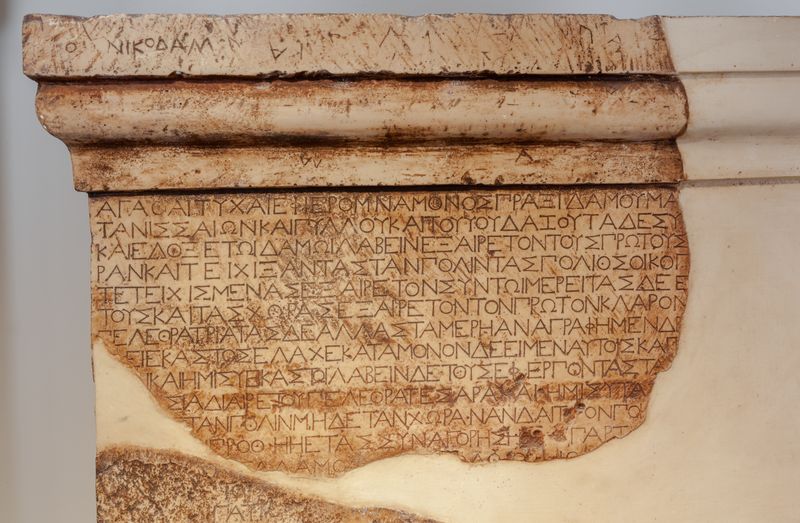 Ο ΝΙΚΟΔΑΜ
ΑΓΑΘΑΙΤΥΧΑΙΕΦΙΕΡΟΜΝΑΜΟΝΟΣΠΡΑΞΙΔΑΜΟΥΜΑ
ΤΑΝΙΣΣΑΙΩΝΚΑΙΠΥΛΛΟΥΚΑΙΤΟΥΥΟΥΔΑΞΟΥΤΑΔΕΣΥ
ΚΑΙΕΔΟΞΕΤΩΙΔΑΜΩΙΛΑΒΕΙΝΕΞΑΙΡΕΤΟΝΤΟΥΣΠΡΩΤΟΥΣ
ΡΑΝΚΑΙΤΕΙΧΙΞΑΝΤΑΣΤΑΝΠΟΛΙΝΤΑΣΠΟΛΙΟΣΟΙΚΟΠ
ΤΕΤΕΙΧΙΣΜΕΝΑΣΕΞΑΙΡΕΤΟΝΣΥΝΤΩΙΜΕΡΕΙΤΑΣΔΕΕ
ΤΟΥΣΚΑΙΤΑΣΧΩΡΑΣΕΞΑΙΡΕΤΟΝΤΟΝΠΡΩΤΟΝΚΛΑΡΟΝ
ΠΕΛΕΘΡΑΤΡΙΑΤΑΣΔΕΑΛΛΑΣΤΑΜΕΡΗΑΝΑΓΡΑΦΗΜΕΝΔΕ
ΠΕΙΕΚΑΣΤΟΣΕΛΑΧΕΚΑΤΑΜΟΝΟΝΔΕΕΙΜΕΝΑΥΤΟΙΣΚΑΙ
ΚΑΙΗΜΙΣΥΕΚΑΣΤΩΙΛΑΒΕΙΝΔΕΤΟΥΣΕΦΕΡΠΟΝΤΑΣ
ΑΔΙΑΙΡΕΤΟΥΠΕΛΕΘΡΑΤΕΣΣΑΡΑΚΑΙΗΜΙΣΥΤΑ
ΤΑΝΠΟΛΙΝΜΗΔΕΤΑΝΧΩΡΑΝΑΝΔΑΙΤΟΝΠΟ
ΠΡΟΘΗΙΗΕΤΑΣΣΥΝΑΓΟΡΗΣΗΙ ΠΑΡΤ
ΔΑΜΟ